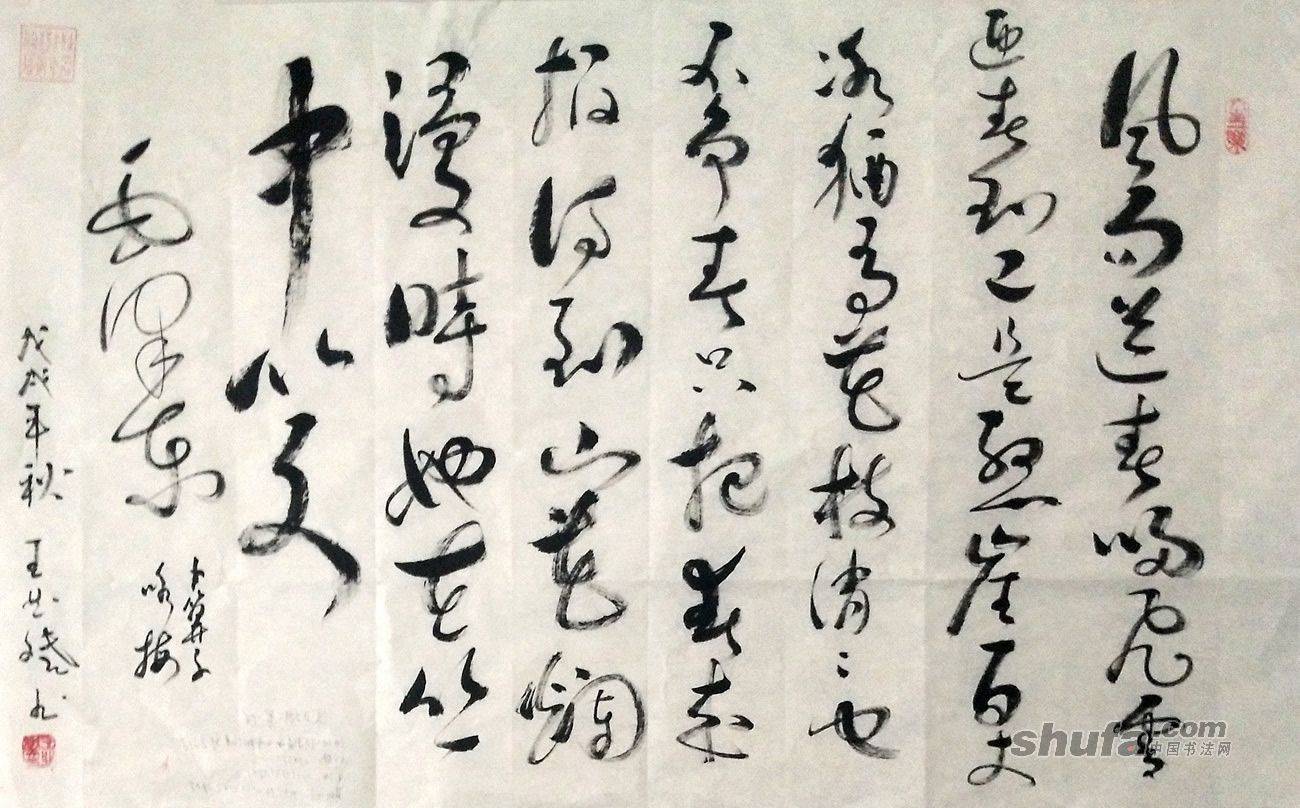 風雨送春归飛雪
迎春到已是悬崖百丈
冰猶有花枝俏〻也
不争春只把春来
报待到山花爛
漫時她在丛
中笑
毛泽东
卜算子
咏梅
戊戌年秋 王
shufa.com
中国书法网